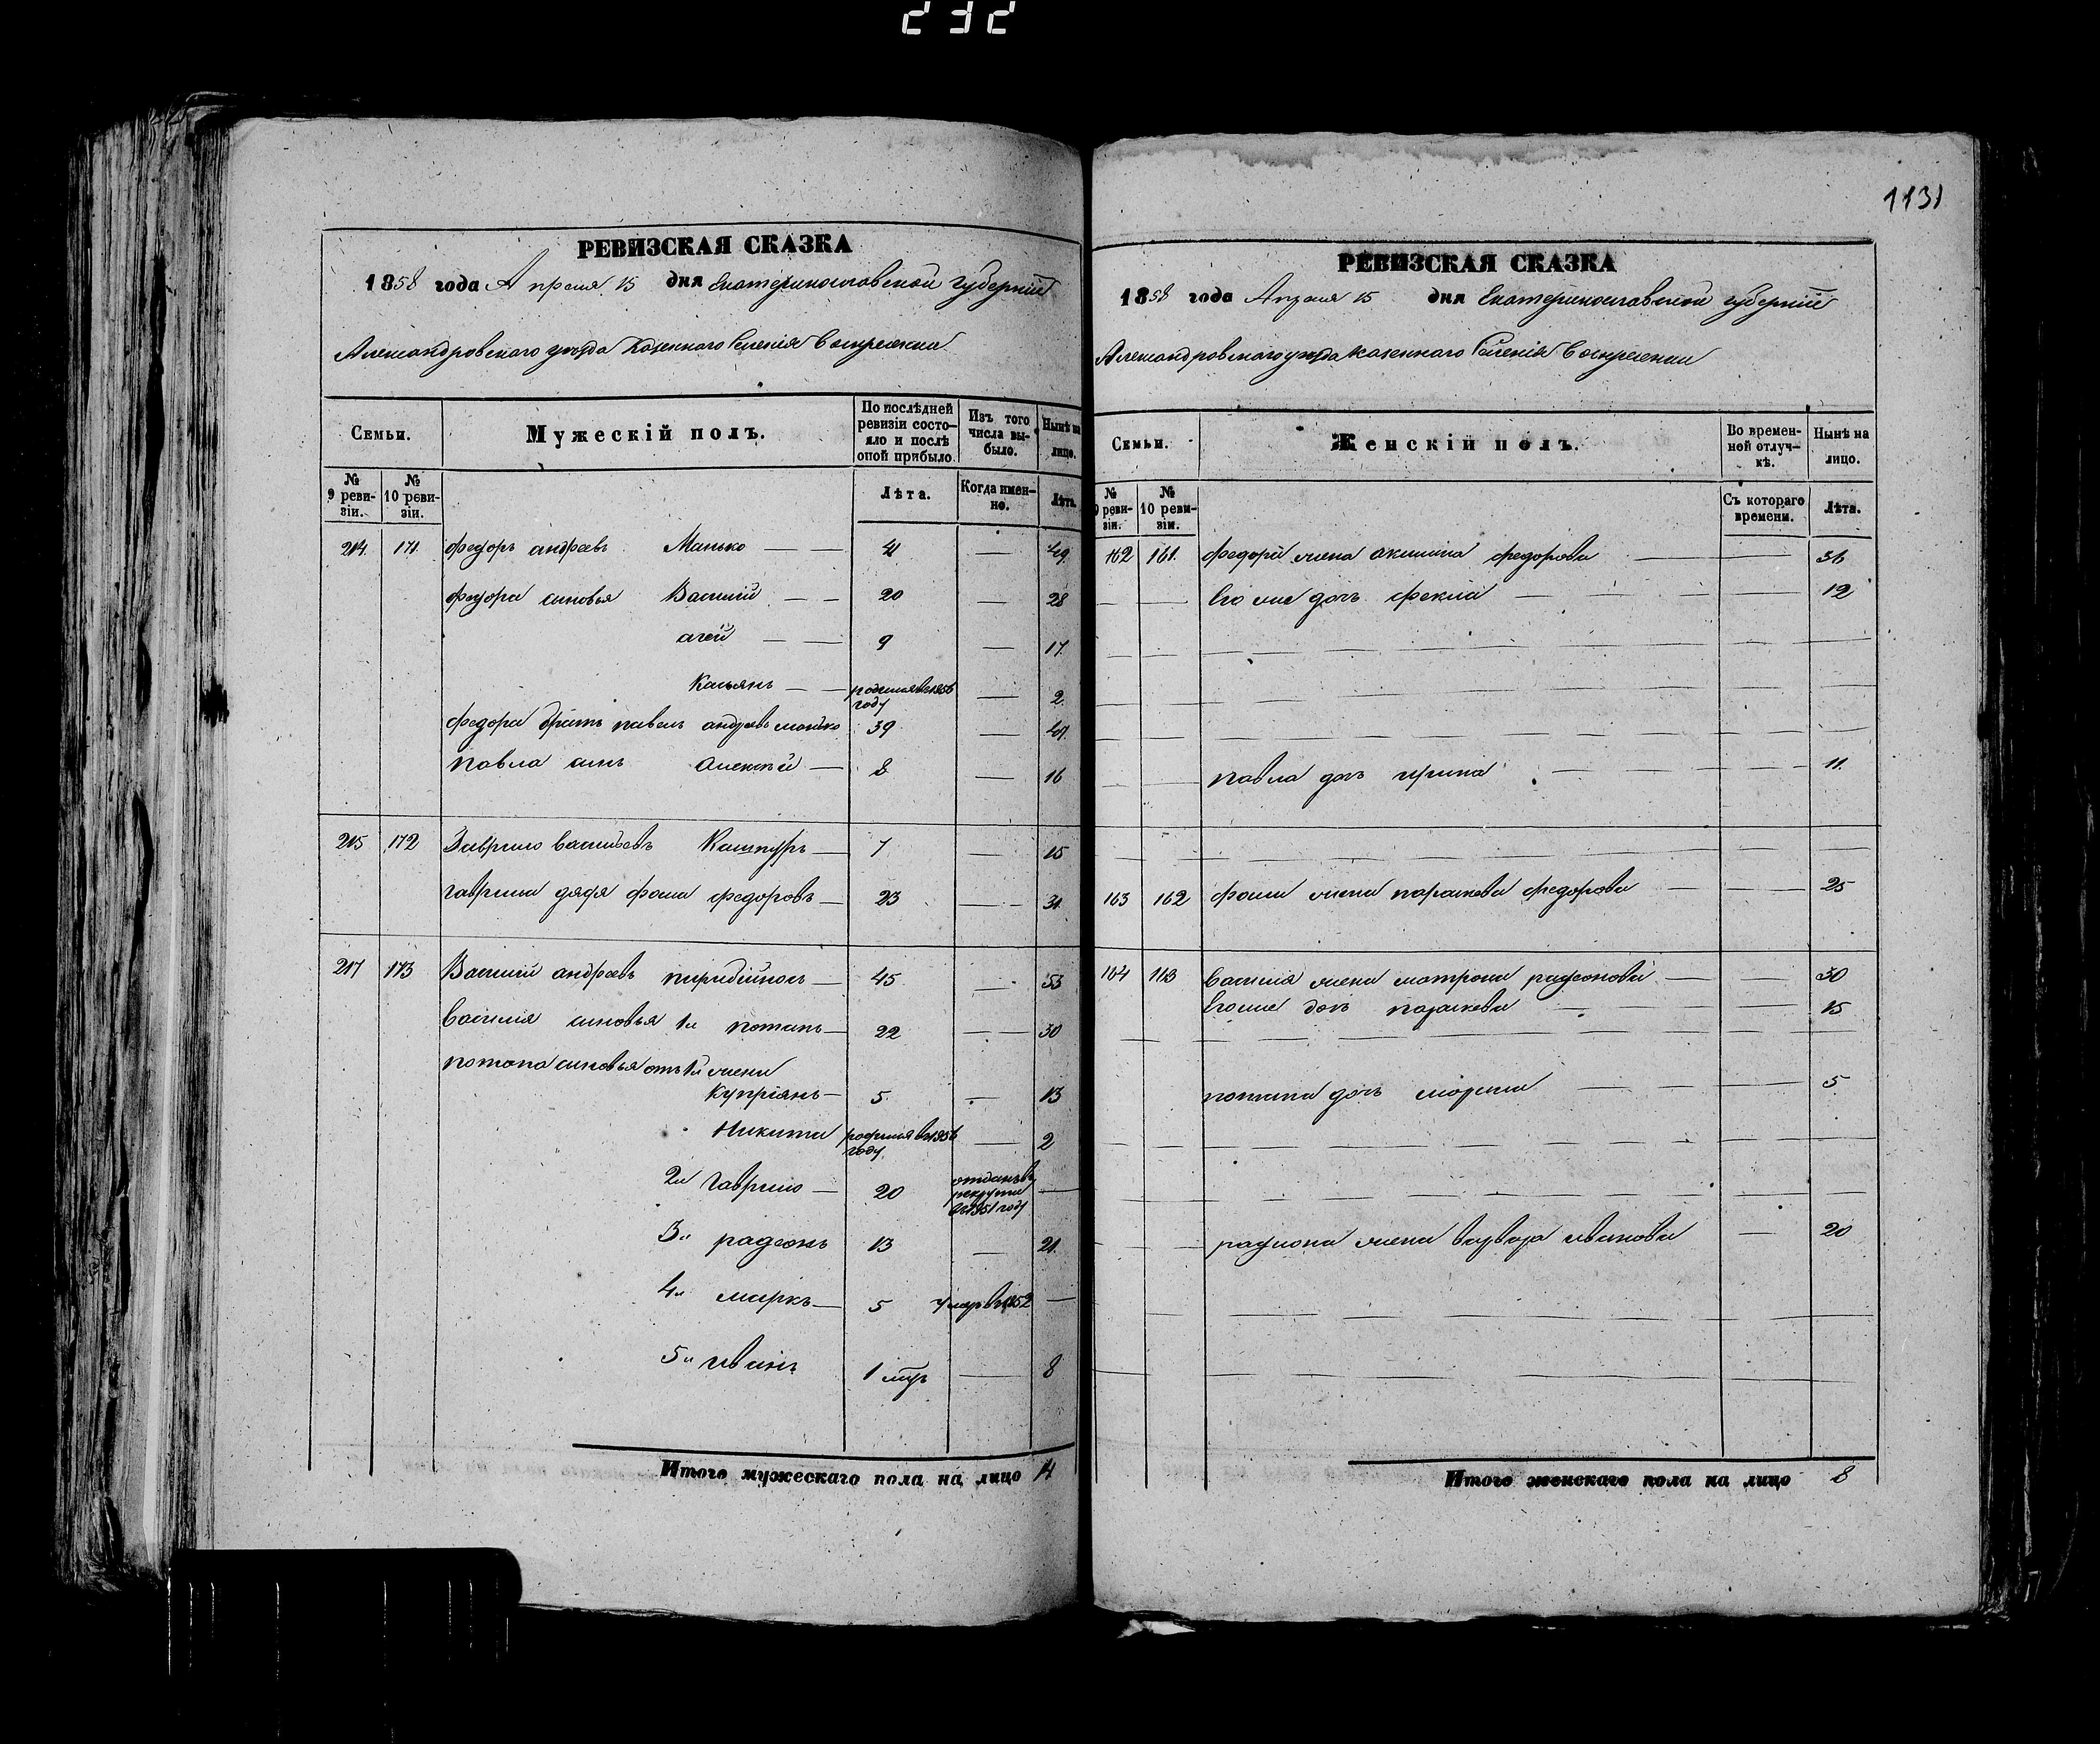 232
1131
РЕВИЗСКАЯ СКАЗКА
1858 года Апреля 15 дня Екатеринославской губернии
Александровского уезда казенного селения Воскресенка
Семьи.
Мужескій полъ.
По послѣдней ревизіи состояло и послѣ оной прибыло.
Изъ того числа выбыло.
Нынѣ на лицо.
№ 9 ревизіи.
№ 10 ревизіи.
Лѣта.
Когда именно.
Лѣта.
214. 171. федоръ андреевъ Манько — 41 — 49.
федора сыновья Василій — 20 — 28
агей — 9 — 17.
Касьянъ — родился въ 1856 году — 2.
федора братъ павелъ андреевъ манько 39 — 47.
павла сынъ Алексей — 8 — 16
215 172 Гаврило васильевъ Кашпуръ — 7 — 15
гаврила дядя фома федоровъ — 23 — 31
217 173 Василий андреевъ — 45 — 53
василия сыновья 1й потапъ — 22 — 30
потапа сыновья отъ 1й жены
Куприянъ — 5 — 13
Никита родился въ 1856 году — 2
2й Гаврило — 20 отданъ въ рекруты въ 1851 году —
3й радеонъ 13 — 21.
4й маркъ — 5 умеръ въ 1852 —
5й иванъ 1 — 8
Итого мужескаго пола на лицо 14
РЕВИЗСКАЯ СКАЗКА
1858 года Апреля 15 дня Екатеринославской губернии
Александровского уезда казенного селения Воскресенки
Семьи.
Женскій полъ.
Во временной отлучкѣ.
Нынѣ на лицо.
№ 9 ревизіи.
№ 10 ревизіи.
Съ котораго времени.
Лѣта.
162 161. федора жена акилина федорова — — 36
Его же дочь фекла — — 12
павла дочь ирина — — 11.
163 162 фомы жена параскева федорова — — 25
164 163 василия жена матрона радеонова — — 50
Его же дочь параскева — 15
потапа дочь марина — — 5
радиона жена варвара иванова — 20
Итого женскаго пола на лицо 8